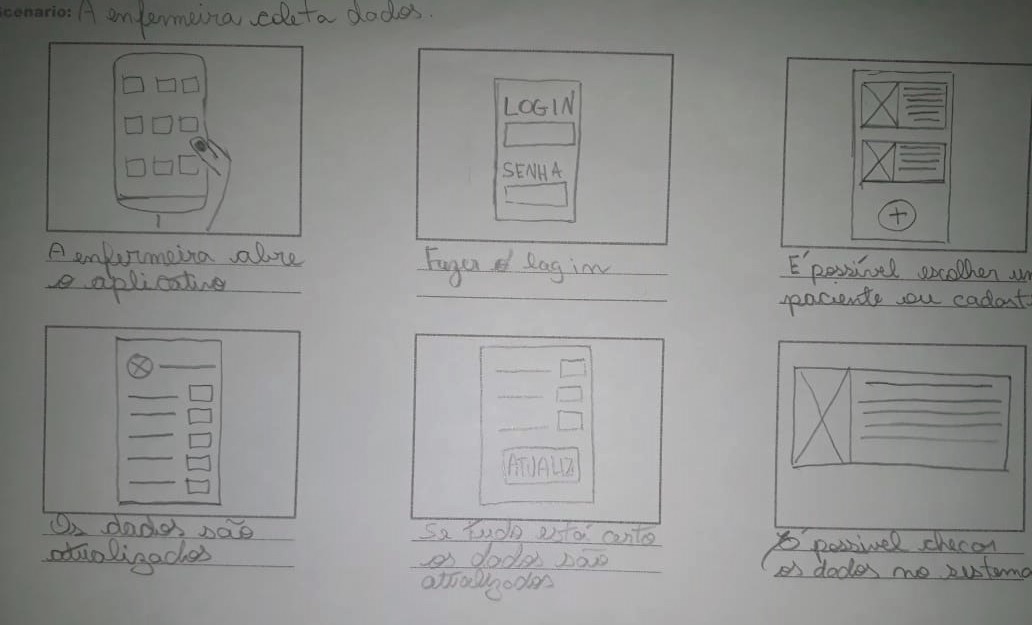 cenario: A enfermeira coleta dados.
LOGIN
SENHA
A enfermeira abre
o aplicativo
Fazer o login
É possível escolher um
paciente ou cadast
ATUALIZ
Os dados são
atualizados
Se tudo está certo
os dados são
atualizados
É possivel checar
os dados no sistema